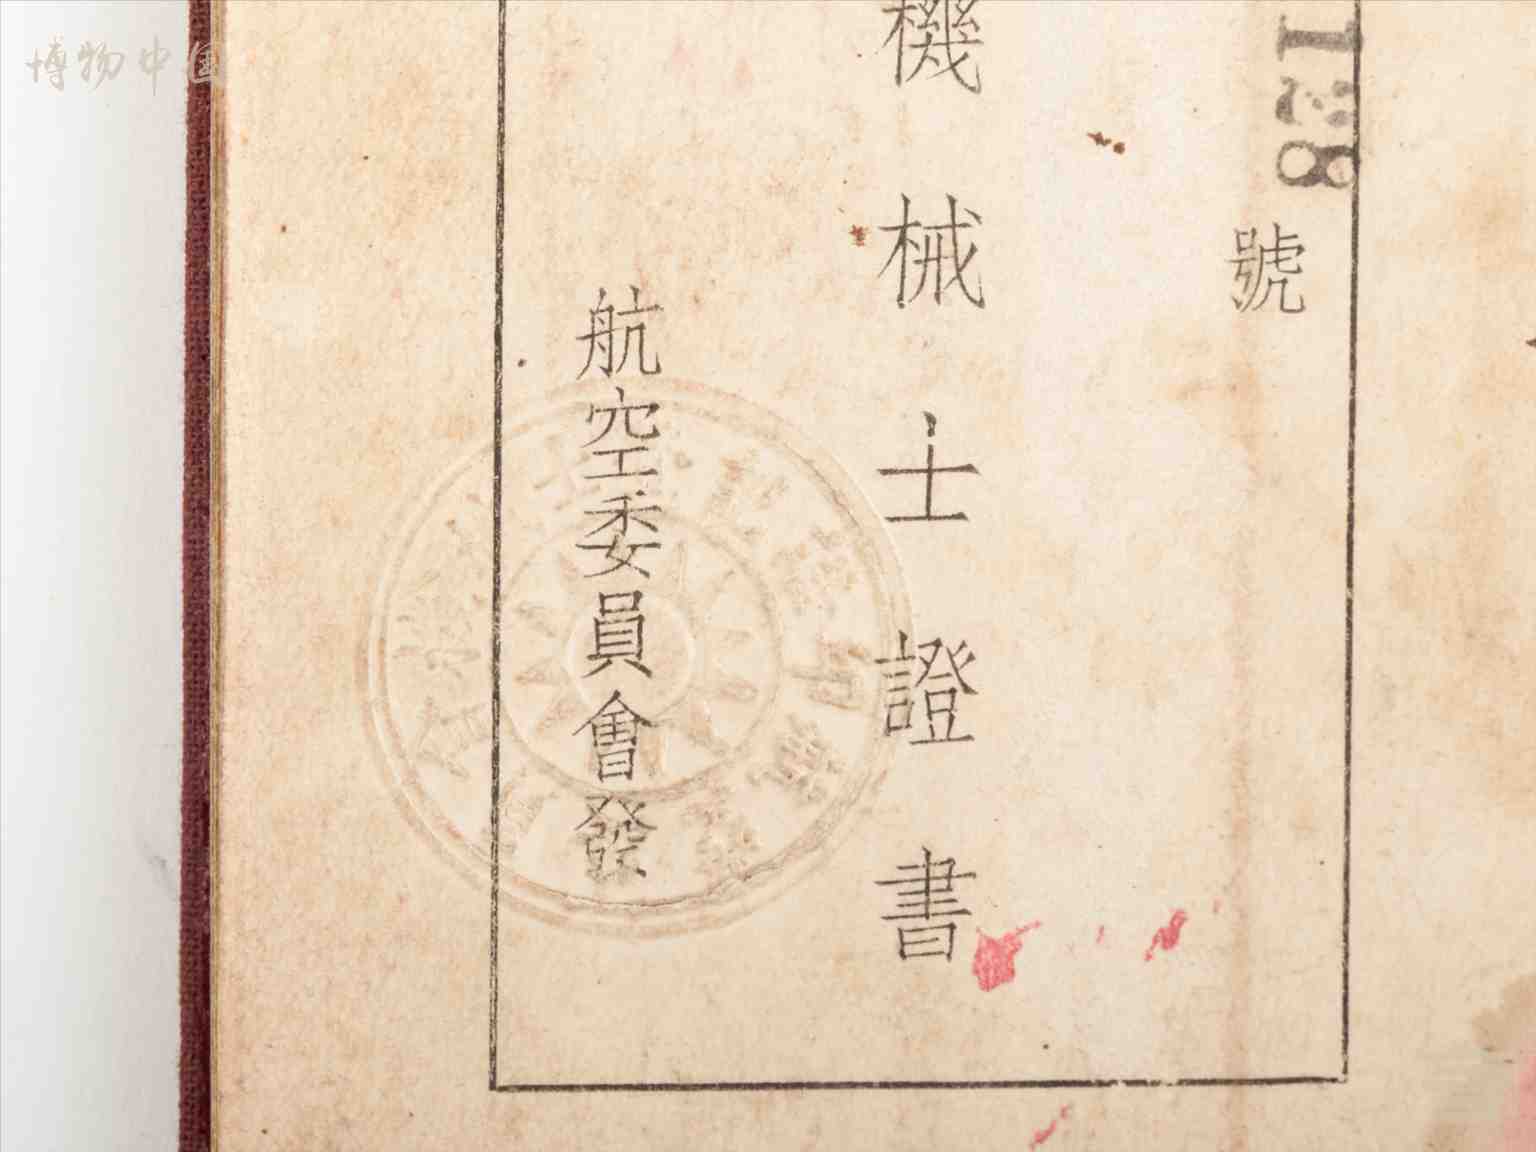 博物中国
128
號
機械士證書
航空委員會發